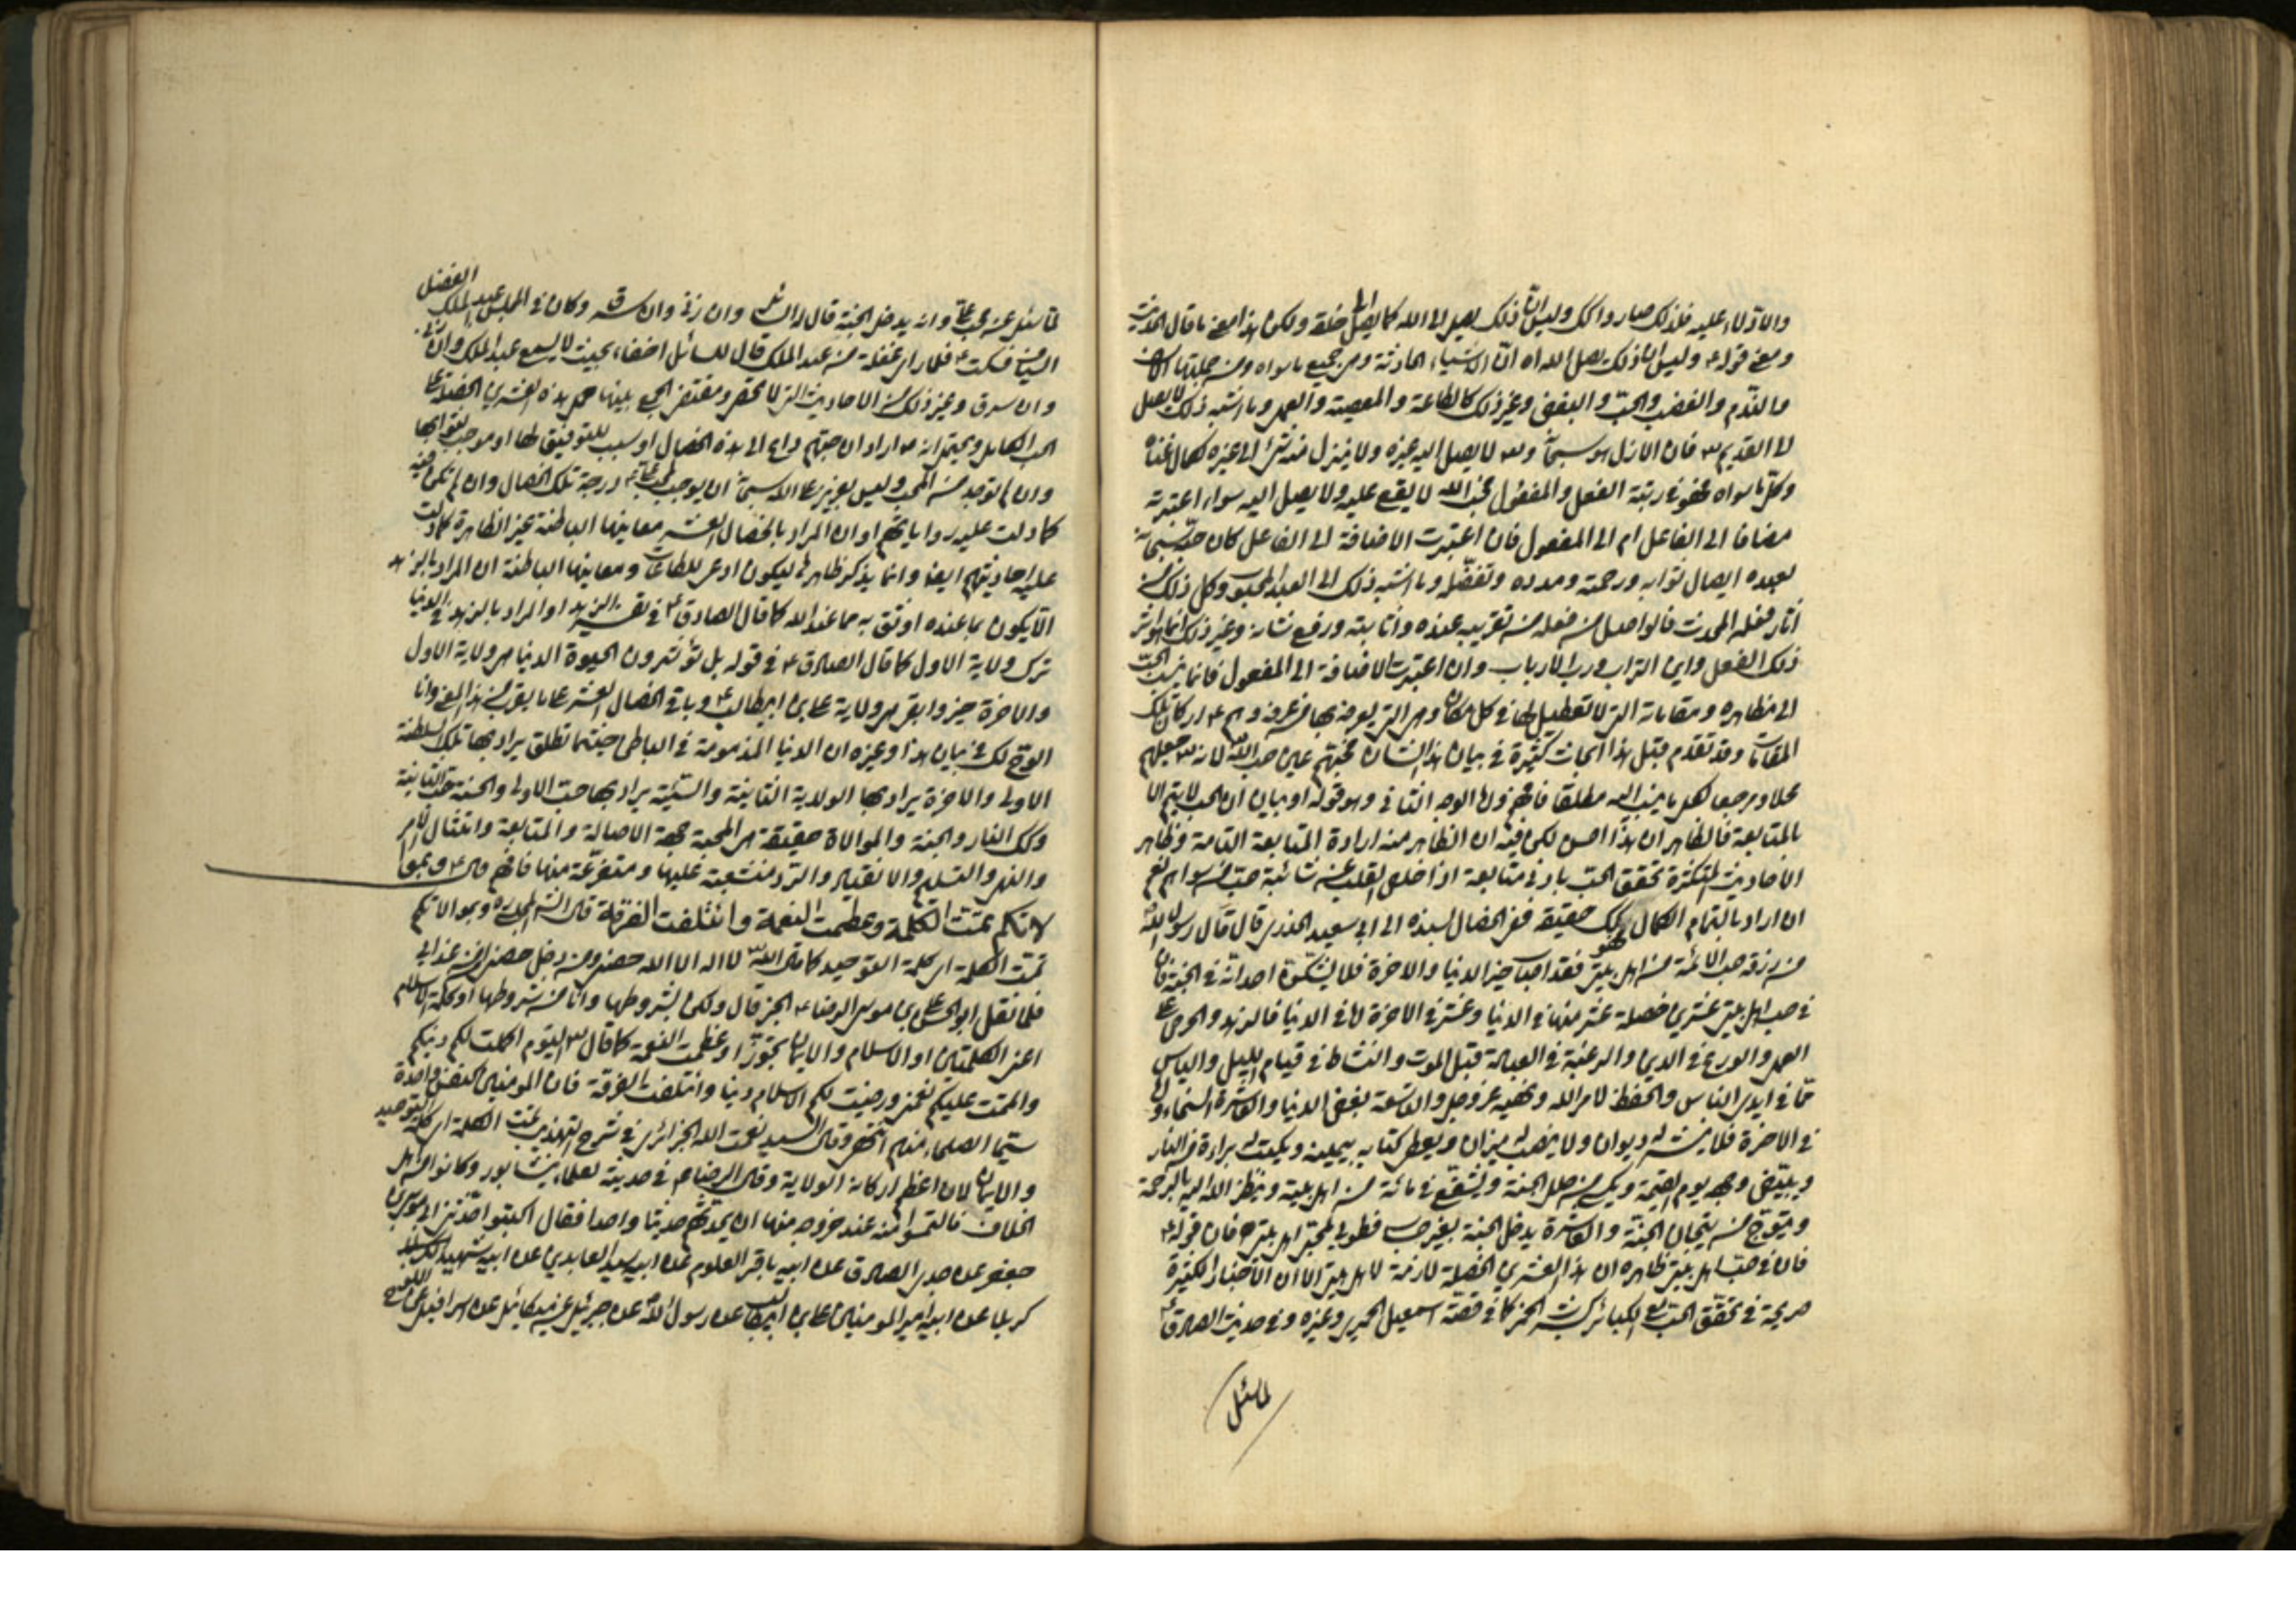 والادلاء عليه فلذلك صاروا كك وليس ان ذلك يصل الى الله كما يصل الى خلقه ولكن هذا معنى ما قال الحديث
ومعنى قوله ع وليس ان ذلك يصل الى الله اه ان الاشياء الحادثة وهي جميع ما سواه ومن جملتها الاسف
والندم والغضب والحب والبغض وغير ذلك كالطاعة والمعصية والعمل وما اشبه ذلك لا يصل
الى القديم فان الازل هو سبحانه وهو لا يصل اليه غيره ولا ينزل منه شئ الى غيره لكمال غناه
وكل ما سواه فهو في رتبة الفعل والمفعول فحب الله لا يقع عليه ولا يصل اليه سواء اعتبرته
مضافا الى الفاعل ام الى المفعول فان اعتبرت الاضافة الى الفاعل كان حبه سبحانه
لعبده ايصال ثوابه ورحمته ومدده وتفضله وما اشبه ذلك الى العبد المحبوب وكل ذلك من
آثار فعله المحدث فالواصل من فعله من تقريب عبده واثابته ورفع شانه وغير ذلك انما هو اثر
ذلك الفعل واين التراب ورب الارباب وان اعتبرت الاضافة الى المفعول فانما ينسب الحب
الى مظاهره ومقاماته التي لا تعطيل لها في كل مكان وهي التي يعرفه بها من عرفه وهم ع اركان تلك
المقامات وقد تقدم قبل هذا ابحاث كثيرة في بيان هذا الشان فمحبتهم عين حب الله لانه جعلهم
محلا ومرجعا لكل ما ينسب اليه مطلقا فافهم واما الوجه الثاني وهو قوله او بيان ان الحب لا يتم الا
بالمتابعة فالظاهر ان هذا احسن لكن فيه ان الظاهر منه ارادة المتابعة التامة وظاهر
الاحاديث المتكثرة تحقق الحب بادنى متابعة اذا خلص القلب من شائبة حب من سواهم نعم
ان اراد بالتمام الكمال فهو كك حقيقة ففي الخصال بسنده الى ابي سعيد الخدري قال قال رسول الله
من رزقه حب الائمة من اهل بيتي فقد اصاب خير الدنيا والاخرة فلا يشكن احد انه في الجنة فان
في حب اهل بيتي عشرين خصلة عشر منها في الدنيا وعشر في الاخرة اما في الدنيا فالزهد والحرص على
العمل والورع في الدين والرغبة في العبادة قبل الموت والنشاط في قيام الليل والياس
مما في ايدي الناس والحفظ لامر الله ونهيه عز وجل والتاسعة بغض الدنيا والعاشرة السخاء واما
في الاخرة فلا ينشر له ديوان ولا ينصب له ميزان ويعطى كتابه بيمينه ويكتب له براءة من النار
ويبيض وجهه يوم القيمة ويكسى من حلل الجنة ويشفع في مائة من اهل بيته وينظر الله اليه بالرحمة
ويتوج من تيجان الجنة والعاشرة يدخل الجنة بغير حساب فطوبى لمحبي اهل بيتي فان قوله ع
فان في حب اهل بيتي ظاهره ان هذه العشرين الخصلة لازمة لاهل بيتي الا ان الاخبار الكثيرة
صريحة في تحقق الحب مع الكبائر كشرب الخمر كما في قصة اسمعيل الحميري وغيره وفي حديث الصادق ع
لما سئل
لما سئل عن محب علي وانه يدخل الجنة قال له السائل وان زنى وان سرق وكان في المجلس عبد الملك الفضل
فسكت ع فلما راى غفلة من عبد الملك قال للسائل اخفاء بحيث لا يسمع عبد الملك وان زنى
وان سرق وغير ذلك من الاحاديث التي لا تحصر ومقتضى الجمع بينها حمل هذه العشرين الخصلة على
الحب الكامل ويحتمل انه ص اراد ان حبهم داع الى هذه الخصال او سبب للتوفيق لها او موجب لثوابها
وان لم توجد من المحب وليس بعزيز على الله سبحانه ان يوجب لمحب علي ع درجة تلك الخصال وان لم تكن فيه
كما دلت عليه رواياتهم او ان المراد بالخصال العشر معانيها الباطنة غير الظاهرة كما دلت
عليه احاديثهم ايضا وانما يذكر ظاهرها ليكون ادعى للطاعات ومعانيها الباطنة ان المراد بالزهد
الا يكون بما عنده اوثق به مما عند الله كما قال الصادق ع في تفسير الزهد او المراد بالزهد في الدنيا
ترك ولاية الاول كما قال الصادق ع في قوله بل تؤثرون الحيوة الدنيا هي ولاية الاول
والاخرة خير وابقى هي ولاية علي بن ابيطالب ع وباقي الخصال العشر على ما يقرب من هذا المعنى وانا
الوح لك في بيان هذا وغيره ان الدنيا المذمومة في الباطن حيثما تطلق يراد بها تلك السلطنة
الاولى والاخرة يراد بها الولاية الثانية والسيئة يراد بها حب الاولى والحسنة حب الثانية
وكك النار والجنة والموالاة حقيقة هي المحبة بجهة الاصالة والمتابعة وامتثال الامر
والنهي والتسليم والانقياد والرد منشعبة عليها ومتفرعة منها فافهم قال ع وبموا
لاتكم تمت الكلمة وعظمت النعمة وائتلفت الفرقة قال الشه المجلسي ره وبموالاتكم
تمت الكلمة اي كلمة التوحيد كما قال الله لا اله الا الله حصني ومن دخل حصني امن عذابي
فلما نقل ابو الحسن علي بن موسى الرضا ع الخبر قال ولكن بشروطها وانا من شروطها او كلمة الاسلام
اعني الكلمتين او الاسلام والايمان تجوزا وعظمت النعمة كما قال اليوم اكملت لكم دينكم
واتممت عليكم نعمتي ورضيت لكم الاسلام دينا وائتلفت الفرقة فان المؤمنين كنفس واحدة
سيما الصلحاء منهم انتهى وقال السيد نعمت الله الجزائري في شرح التهذيب تمت الكلمة اي كلمة التوحيد
والايمان لان اعظم اركانه الولاية وقال الرضا ع في مدينة لعلماء نيشابور وكانوا من اهل
الخلاف فالتمسوا منه عند خروجه منها ان يحدثهم حديثا واحدا فقال اكتبوا حدثني ابي موسى بن
جعفر عن جدي الصادق عن ابيه باقر العلوم عن ابيه سيد العابدين عن ابيه شهيد
كربلا عن ابيه امير المؤمنين علي بن ابيطالب عن رسول الله عن جبرئيل عن ميكائيل عن اسرافيل عن اللوح